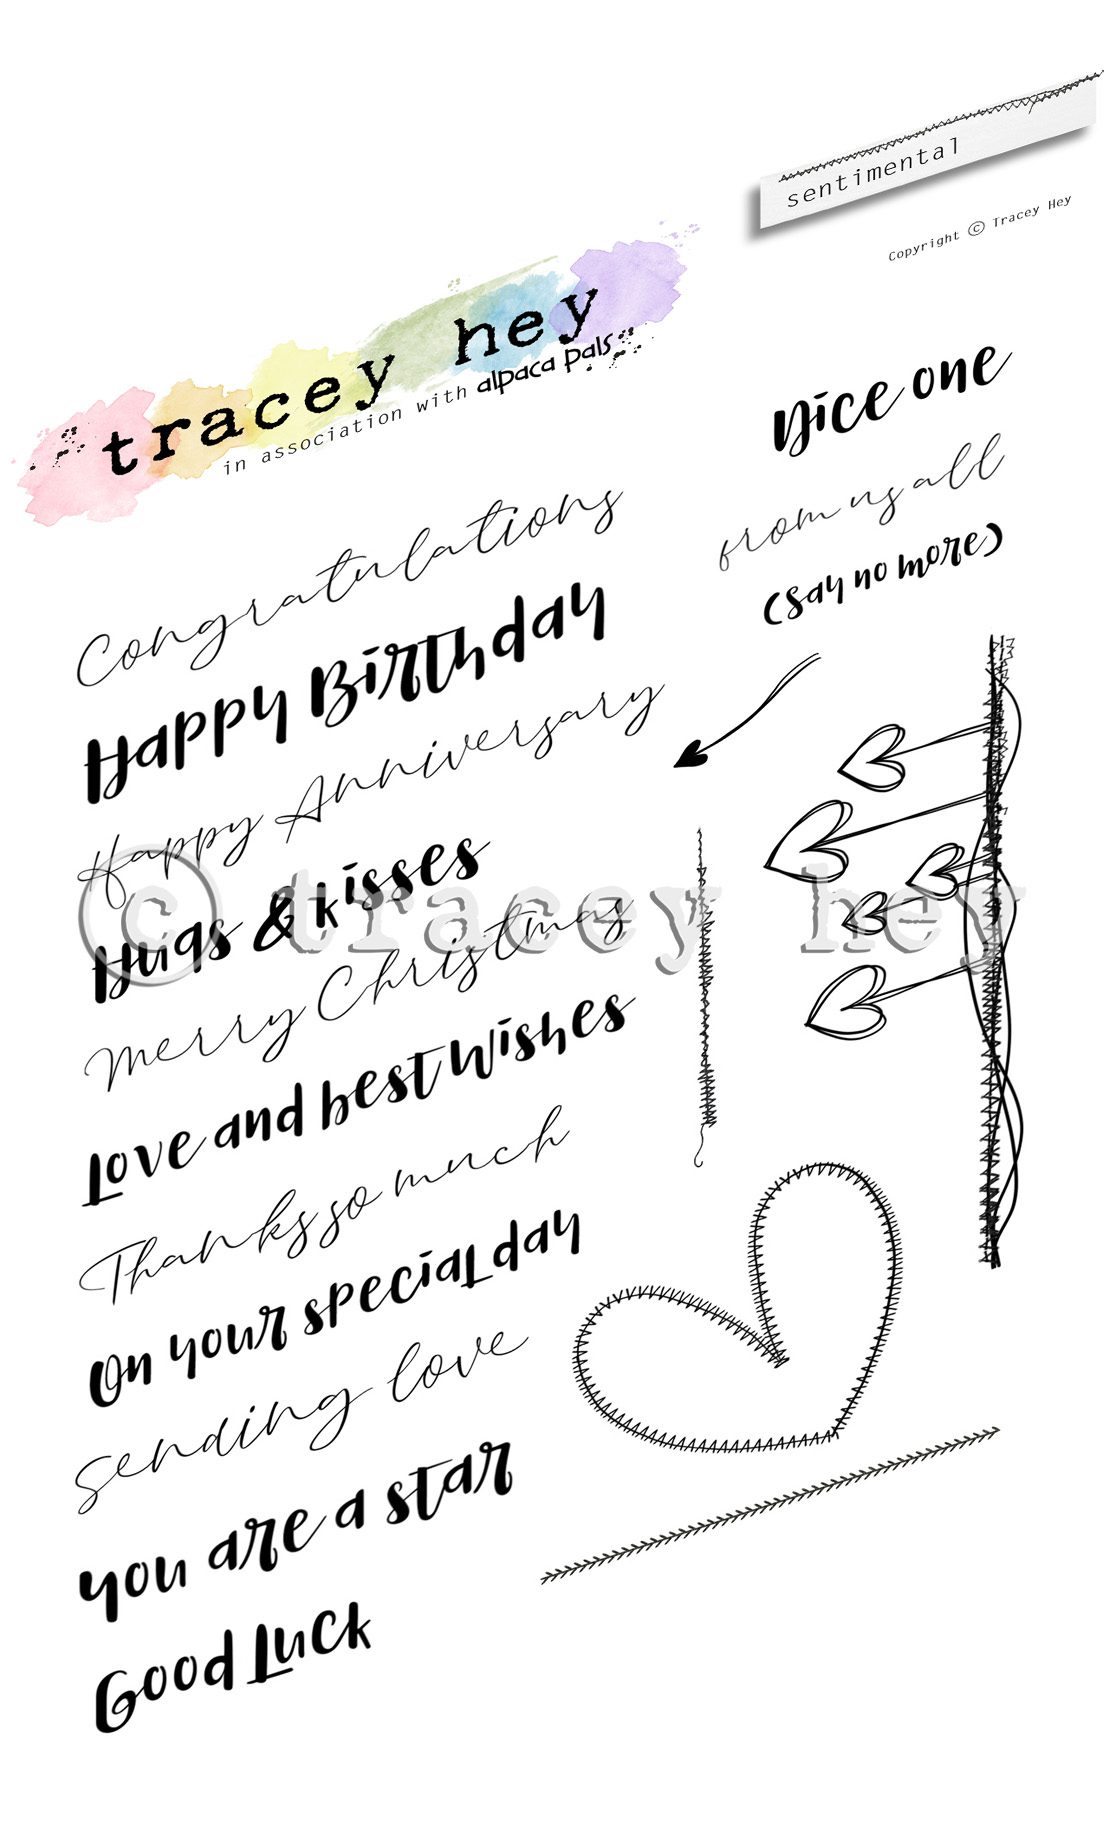 sentimental
Copyright © Tracey Hey
tracey hey
in association with alpaca pals
Congratulations
Happy Birthday
Happy Anniversary
Hugs & kisses
Merry Christmas
Love and best wishes
Thanks so much
On your special day
sending love
you are a star
Good Luck
Nice one
from us all
(say no more)
© tracey hey